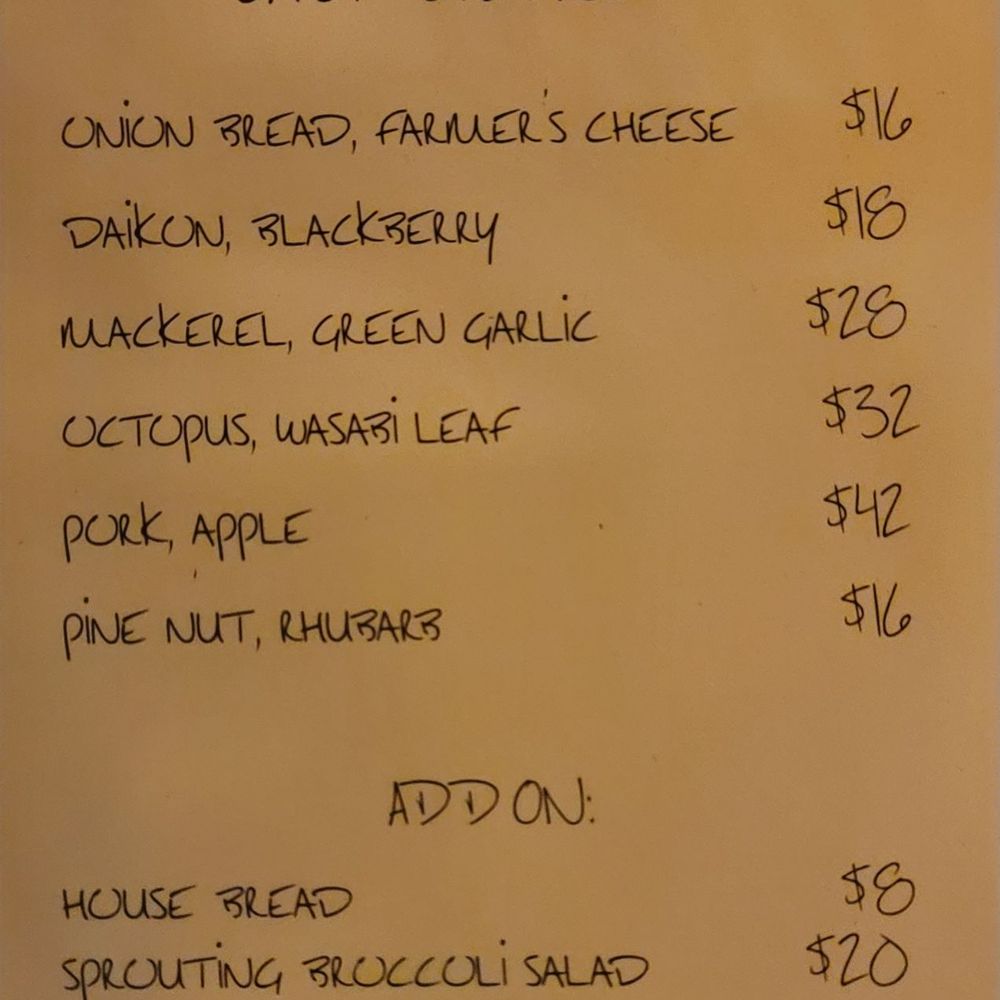 ONION BREAD, FARMER'S CHEESE $16
DAIKON, BLACKBERRY $18
MACKEREL, GREEN GARLIC $28
OCTOPUS, WASABI LEAF $32
PORK, APPLE $42
PINE NUT, RHUBARB $16
ADD ON:
HOUSE BREAD $8
SPROUTING BROCCOLI SALAD $20